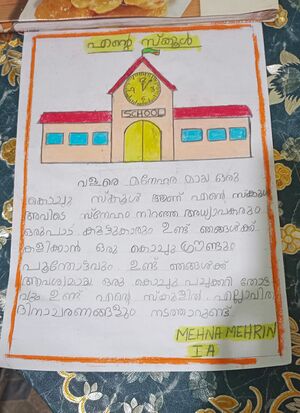 എന്റെ സ്കൂൾ
SCHOOL
വളരെ മനോഹര മായ ഒരു
കൊച്ചു സ്കൂൾ ആണ് എന്റെ സ്കൂൾ
അവിടെ സ്നേഹം നിറഞ്ഞ അധ്യാപകരും
ഒരുപാട് കൂട്ടുകാരും ഉണ്ട് ഞങ്ങൾക്ക്
കളിക്കാൻ ഒരു കൊച്ചു ഗ്രൗണ്ടും
പൂന്തോട്ടവും ഉണ്ട് ഞങ്ങൾക്ക്
ആവശ്യമായ ഒരു കൊച്ചു പച്ചക്കറി തോട്ട
വും ഉണ്ട് എന്റെ സ്കൂളിൽ എല്ലാവിധ
ദിനാചരണങ്ങളും നടത്താറുണ്ട്
MEHNA MEHRIN
I A